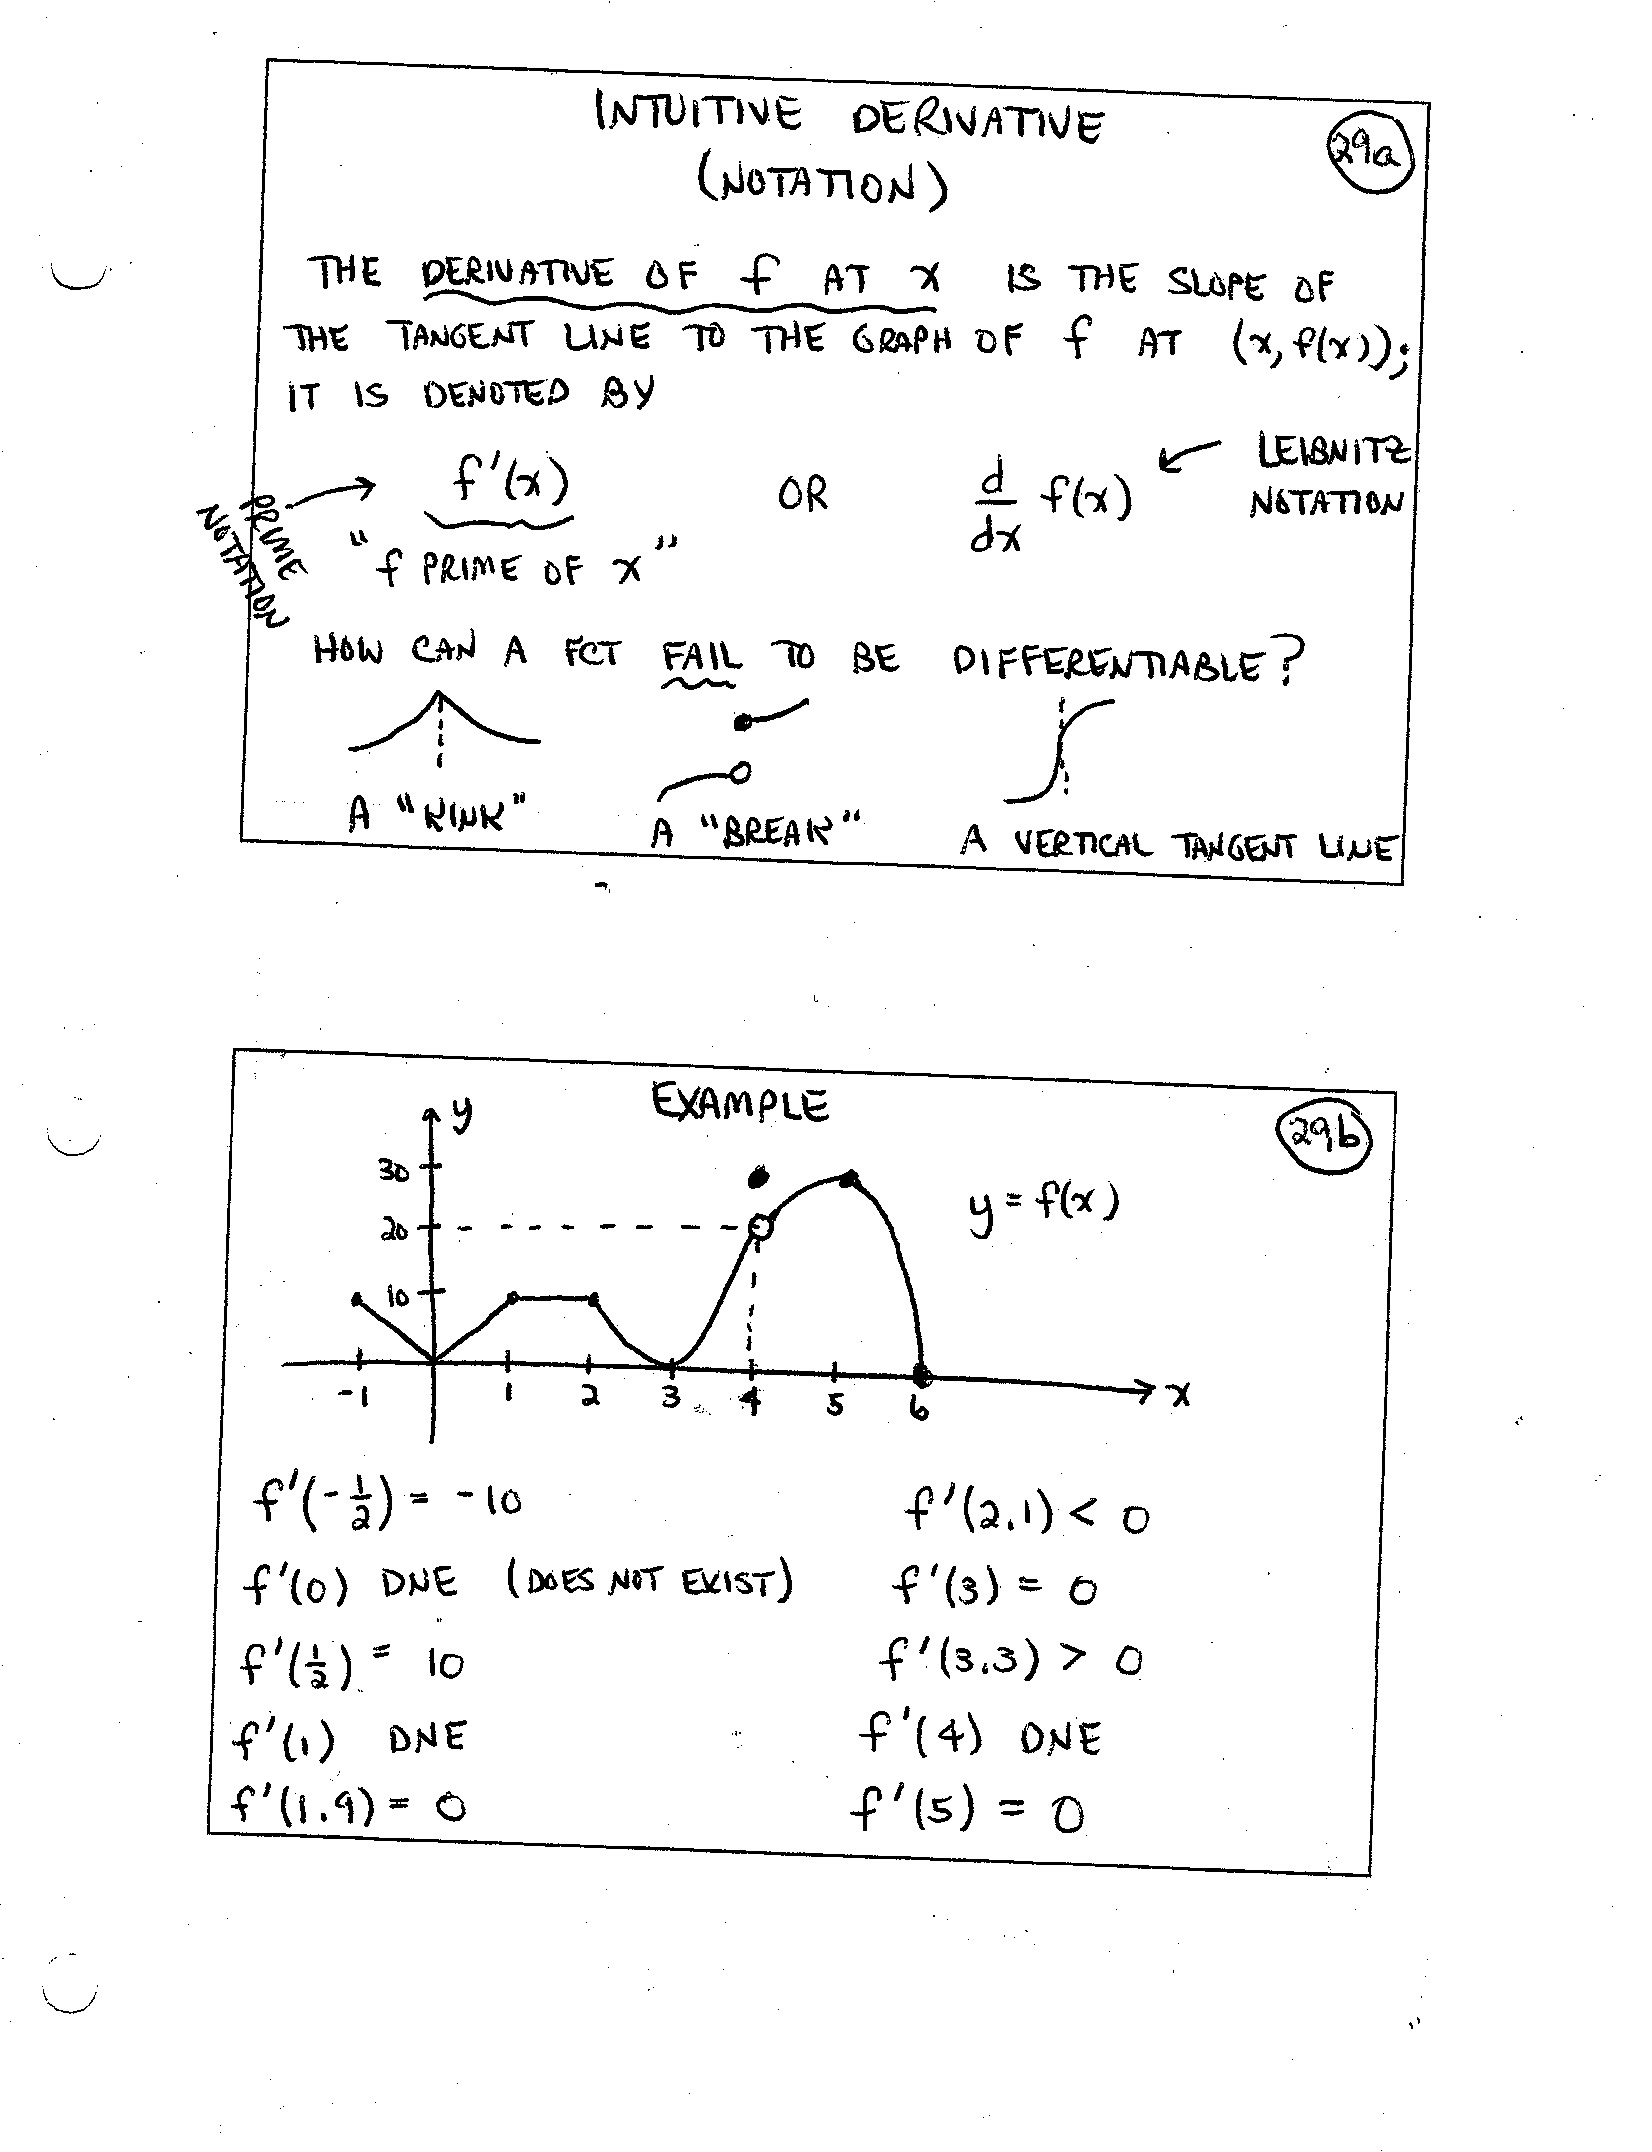 INTUITIVE DERIVATIVE
(NOTATION)
29a
THE DERIVATIVE OF f AT x IS THE SLOPE OF
THE TANGENT LINE TO THE GRAPH OF f AT (x, f(x));
IT IS DENOTED BY
PRIME NOTATION
f'(x) OR d/dx f(x)
LEIBNITZ
NOTATION
"f PRIME OF x"
HOW CAN A FCT FAIL TO BE DIFFERENTIABLE?
A "KINK"
A "BREAK"
A VERTICAL TANGENT LINE
EXAMPLE
29b
y
30
20
10
y = f(x)
-1 1 2 3 4 5 6 x
f'(-1/2) = -10
f'(0) DNE (DOES NOT EXIST)
f'(1/2) = 10
f'(1) DNE
f'(1.9) = 0
f'(2.1) < 0
f'(3) = 0
f'(3.3) > 0
f'(4) DNE
f'(5) = 0